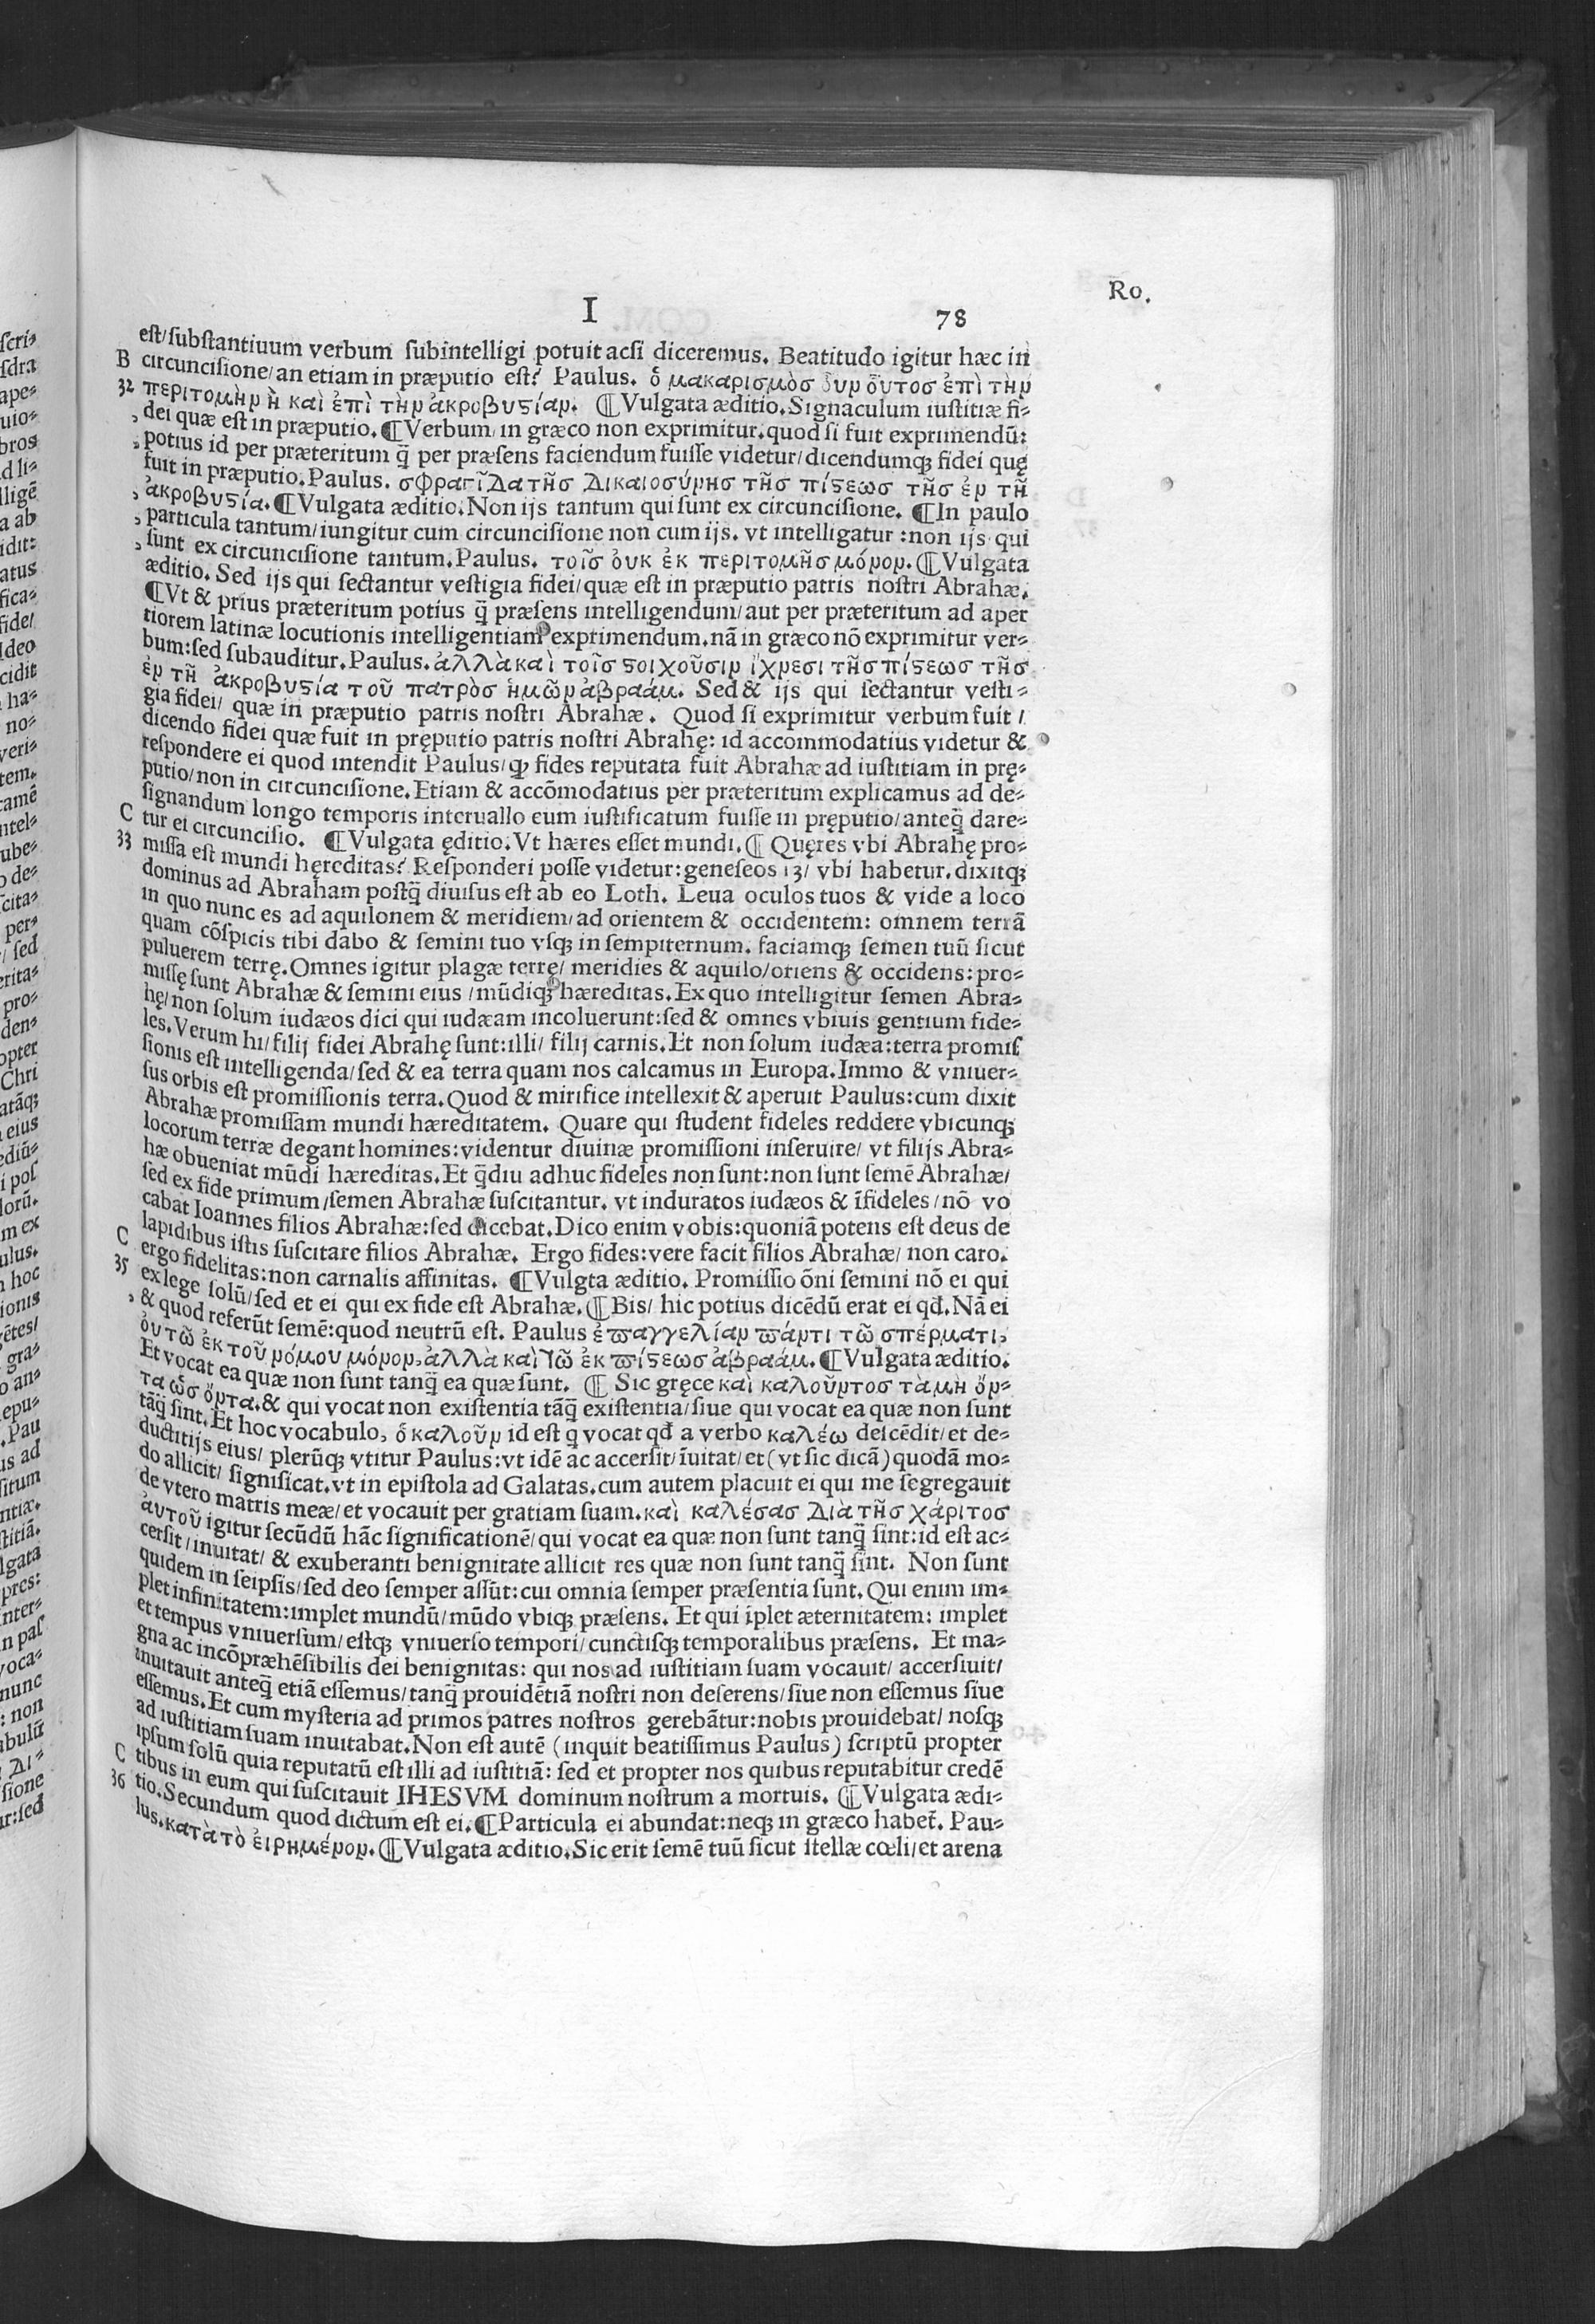 I
78
Ro.
est/substantiuum verbum subintelligi potuit acsi diceremus. Beatitudo igitur hæc in
B circuncisione/an etiam in præputio est? Paulus. ὁ μακαρισμὸσ ὃυν ὅυτοσ ἐπὶ τὴν
32 περιτομὴν ἢ καὶ ἐπὶ τὴν ἀκροβυϛίαν. ¶Vulgata æditio. Signaculum iustitiæ fi-
, dei quæ est in præputio. ¶Verbum in græco non exprimitur. quod si fuit exprimendū:
, potius id per præteritum q̄ per præsens faciendum fuisse videtur/dicendumqꝫ fidei quę
fuit in præputio. Paulus. σφραγῖδα τῆσ δικαιοσύνησ τῆσ πίϛεωσ τῆσ ἐν τῆ
, ἀκροβυϛία. ¶Vulgata æditio. Non ijs tantum qui sunt ex circuncisione. ¶In paulo
, particula tantum/iungitur cum circuncisione non cum ijs. vt intelligatur: non ijs qui
, sunt ex circuncisione tantum. Paulus. τοῖσ ὀυκ ἐκ περιτομῆσ μόνον. ¶Vulgata
æditio. Sed ijs qui sectantur vestigia fidei/quæ est in præputio patris nostri Abrahæ.
¶Vt & prius præteritum potius q̄ præsens intelligendum/aut per præteritum ad aper
tiorem latinæ locutionis intelligentiam exprimendum. nā in græco nō exprimitur ver-
bum: sed subauditur. Paulus. ἀλλὰ καὶ τοῖσ ϛοιχοῦσιν ἴχνεσι τῆσ πίϛεωσ τῆσ
ἐν τῆ ἀκροβυϛία τοῦ πατρὸσ ἡμῶν ἀβραάμ. Sed & ijs qui sectantur vesti-
gia fidei/ quæ in præputio patris nostri Abrahæ. Quod si exprimitur verbum fuit/
dicendo fidei quæ fuit in pręputio patris nostri Abrahę: id accommodatius videtur &
respondere ei quod intendit Paulus/qꝙ fides reputata fuit Abrahæ ad iustitiam in prę-
putio/non in circuncisione. Etiam & accōmodatius per præteritum explicamus ad de-
signandum longo temporis interuallo eum iustificatum fuisse in pręputio/anteq̄ dare-
C tur ei circuncisio. ¶Vulgata ęditio. Vt hæres esset mundi. ¶Quęres vbi Abrahę pro-
33 missa est mundi hęreditas? Responderi posse videtur: geneseos 13/ vbi habetur. dixitqꝫ
dominus ad Abraham postq̄ diuisus est ab eo Loth. Leua oculos tuos & vide a loco
in quo nunc es ad aquilonem & meridiem/ad orientem & occidentem: omnem terrā
quam cōspicis tibi dabo & semini tuo vsqꝫ in sempiternum. faciamqꝫ semen tuū sicut
puluerem terrę. Omnes igitur plagæ terrę/ meridies & aquilo/oriens & occidens: pro-
missę sunt Abrahæ & semini eius /mūdiqꝫ hæreditas. Ex quo intelligitur semen Abra-
hę/non solum iudæos dici qui iudæam incoluerunt: sed & omnes vbiuis gentium fide-
les. Verum hi/filij fidei Abrahę sunt: illi/ filij carnis. Et non solum iudæa: terra promis
sionis est intelligenda/sed & ea terra quam nos calcamus in Europa. Immo & vniuer-
sus orbis est promissionis terra. Quod & mirifice intellexit & aperuit Paulus: cum dixit
Abrahæ promissam mundi hæreditatem. Quare qui student fideles reddere vbicunqꝫ
locorum terræ degant homines: videntur diuinæ promissioni inseruire/ vt filijs Abra-
hæ obueniat mūdi hæreditas. Et q̄diu adhuc fideles non sunt: non sunt semē Abrahæ/
sed ex fide primum/semen Abrahæ suscitantur. vt induratos iudæos & īfideles/nō vo
cabat Ioannes filios Abrahæ: sed dicebat. Dico enim vobis: quoniā potens est deus de
lapidibus istis suscitare filios Abrahæ. Ergo fides: vere facit filios Abrahæ/ non caro.
C ergo fidelitas: non carnalis affinitas. ¶Vulgta æditio. Promissio ōni semini nō ei qui
35 ex lege solū/sed et ei qui ex fide est Abrahæ. ¶Bis/ hic potius dicēdū erat ei qđ. Nā ei
, & quod referūt semē: quod neutrū est. Paulus ἐπαγγελίαν πάντι τῶ σπέρματι,
ὀυτῶ ἐκ τοῦ νόμου μόνον, ἀλλὰ καὶ τῶ ἐκ πίϛεωσ ἀβραάμ. ¶Vulgata æditio.
Et vocat ea quæ non sunt tanq̄ ea quæ sunt. ¶Sic gręce καὶ καλοῦντοσ τὰ μὴ ὄν-
τα ὡσ ὄντα. & qui vocat non existentia tāq̄ existentia/siue qui vocat ea quæ non sunt
tāq̄ sint. Et hoc vocabulo, ὁ καλοῦν id est q vocat qđ a verbo καλέω descēdit/et de-
ductitijs eius/ plerūqꝫ vtitur Paulus: vt idē ac accersit/īuitat/et (vt sic dicā) quodā mo-
do allicit/ significat. vt in epistola ad Galatas. cum autem placuit ei qui me segregauit
de vtero matris meæ/et vocauit per gratiam suam. καὶ καλέσασ διὰ τῆσ χάριτοσ
ἀυτοῦ igitur secūdū hāc significationē/qui vocat ea quæ non sunt tanq̄ sint: id est ac-
cersit/inuitat/ & exuberanti benignitate allicit res quæ non sunt tanq̄ sint. Non sunt
quidem in seipsis/sed deo semper assūt: cui omnia semper præsentia sunt. Qui enim im-
plet infinitatem: implet mundū/mūdo vbiqꝫ præsens. Et qui īplet æternitatem: implet
et tempus vniuersum/estqꝫ vniuerso tempori/cunctisqꝫ temporalibus præsens. Et ma-
gna ac incōpræhēsibilis dei benignitas: qui nos ad iustitiam suam vocauit/ accersiuit/
inuitauit anteq̄ etiā essemus/tanq̄ prouidētiā nostri non deserens/siue non essemus siue
essemus. Et cum mysteria ad primos patres nostros gerebātur: nobis prouidebat/ nosqꝫ
ad iustitiam suam inuitabat. Non est autē (inquit beatissimus Paulus) scriptū propter
ipsum solū quia reputatū est illi ad iustitiā: sed et propter nos quibus reputabitur credē
C tibus in eum qui suscitauit IHESVM dominum nostrum a mortuis. ¶Vulgata ædi-
36 tio. Secundum quod dictum est ei. ¶Particula ei abundat: neqꝫ in græco habet᷑. Pau-
lus. κατὰ τὸ ἐιρημένον. ¶Vulgata æditio. Sic erit semē tuū sicut stellæ cœli/et arena